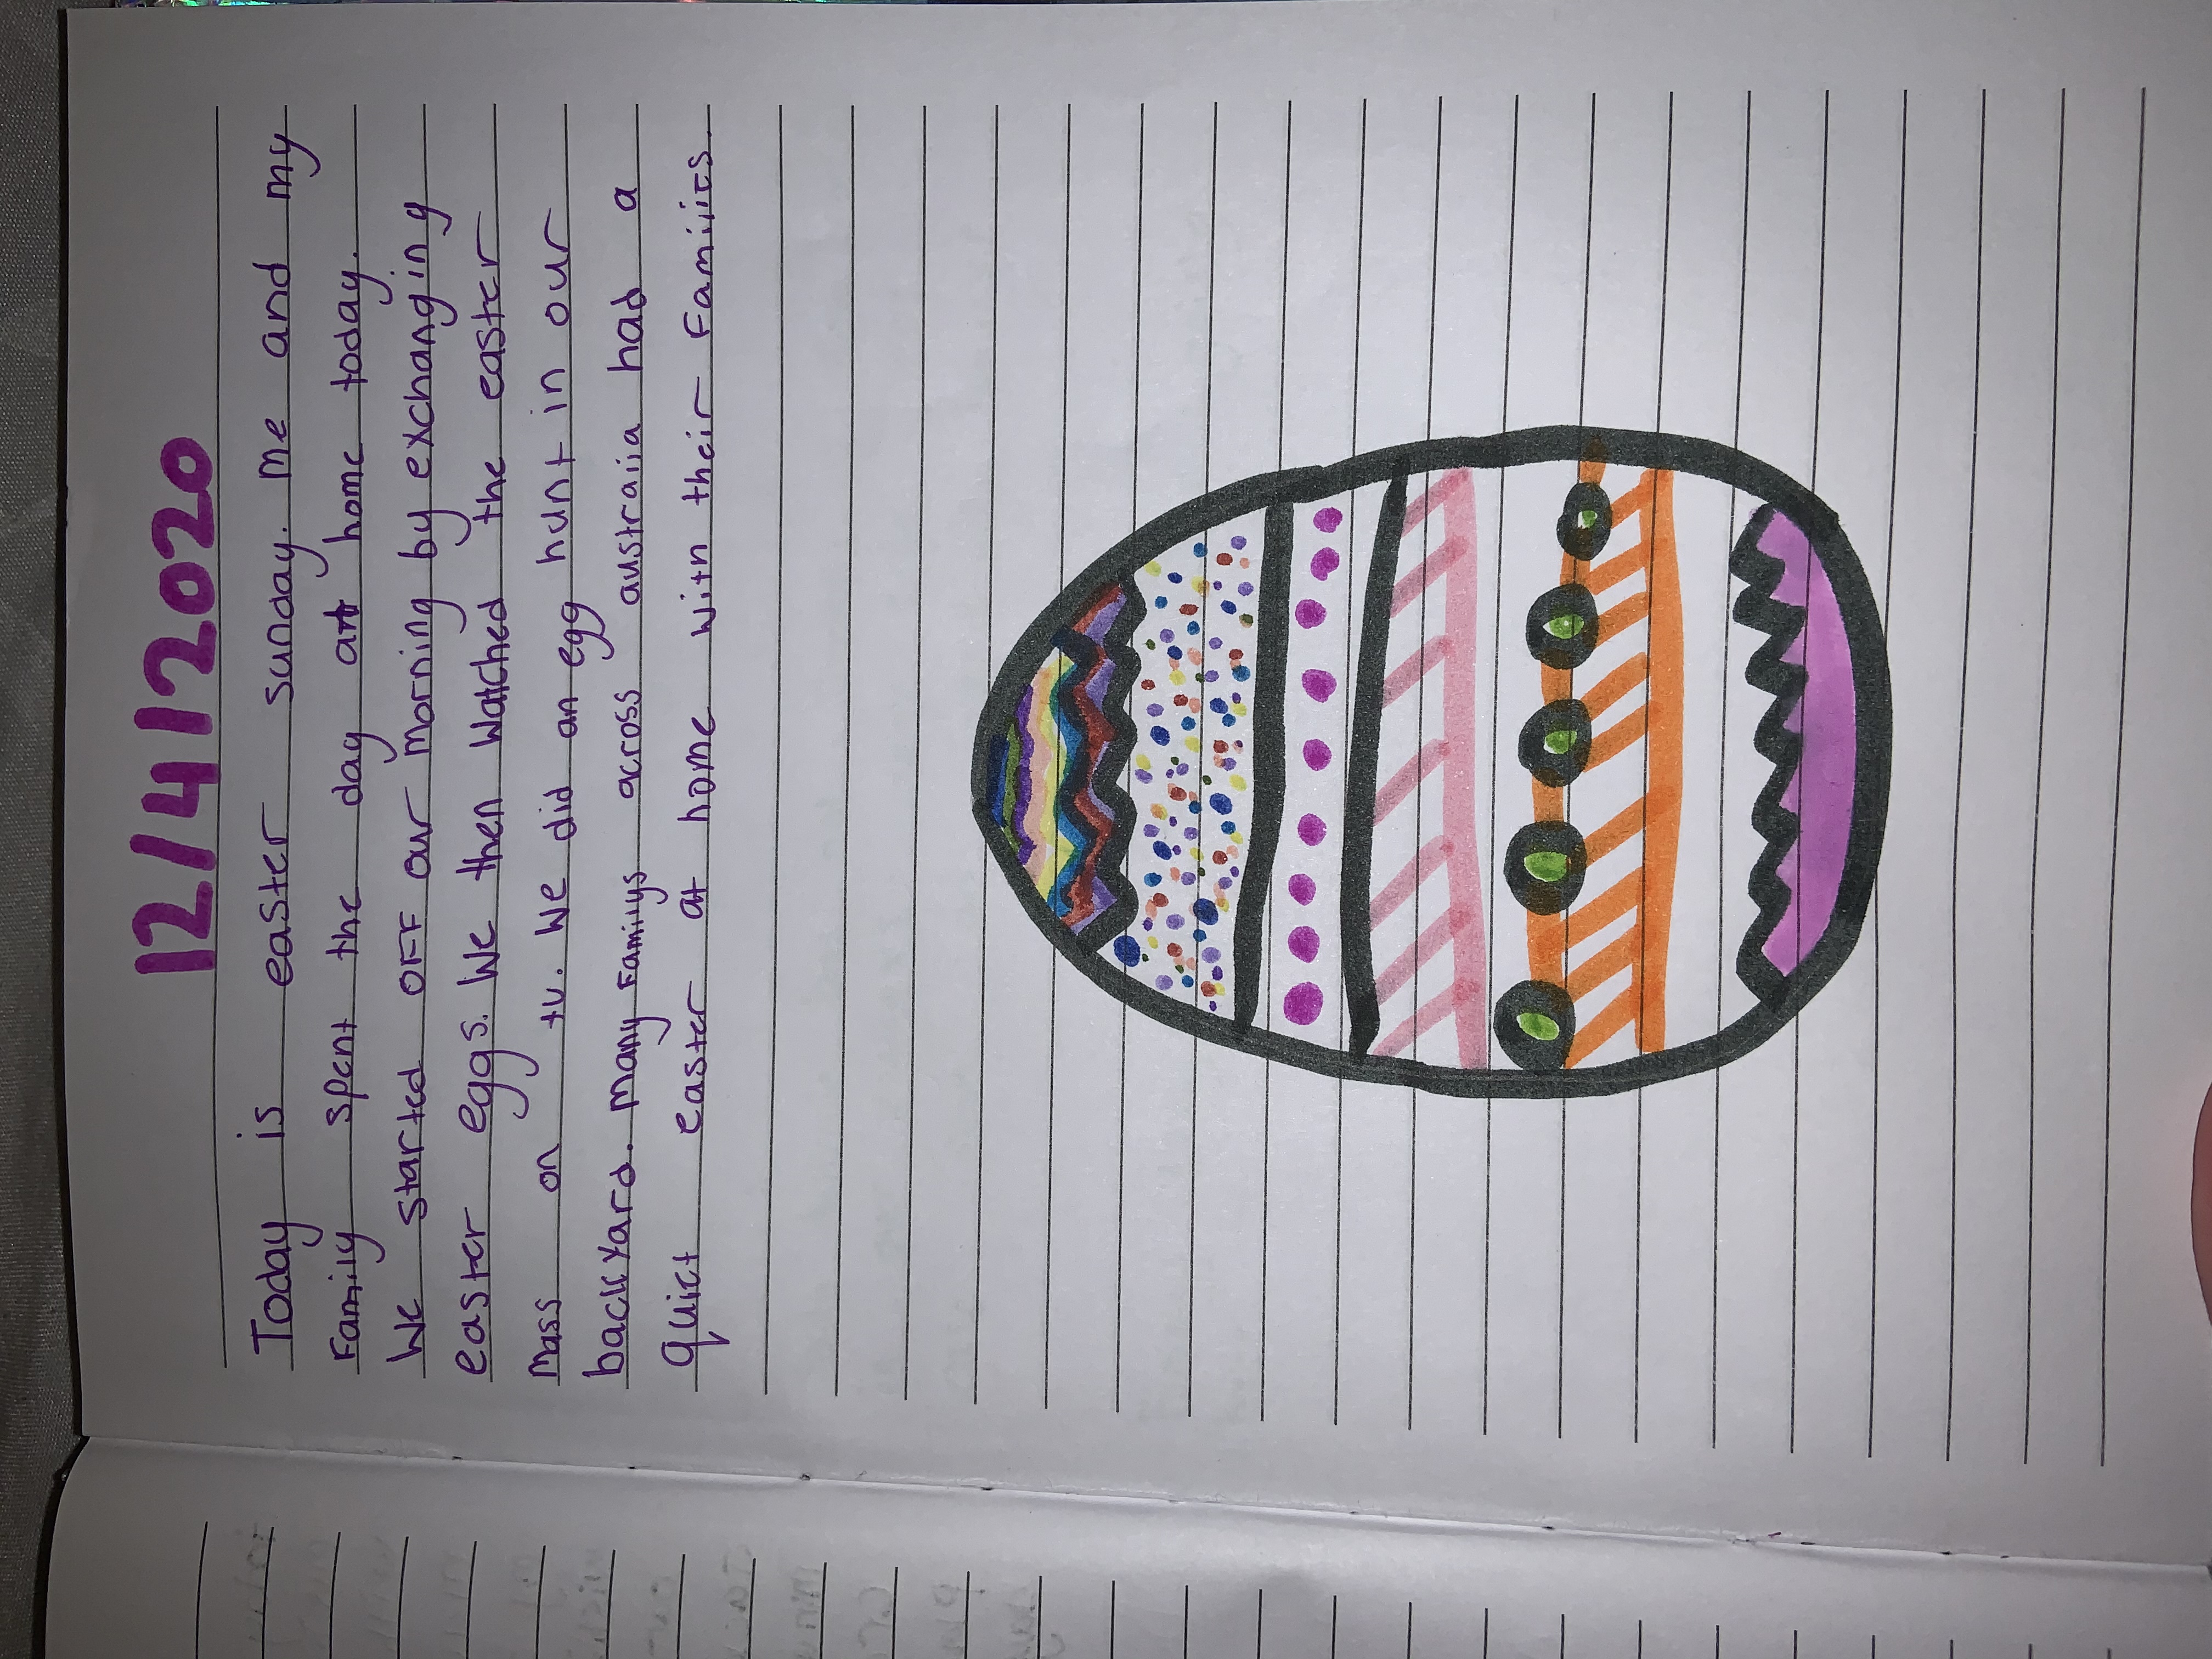 12/4/2020
Today is easter sunday. Me and my
Family spent the day at home today.
We started OFF our morning by exchanging
easter eggs. We then watched the easter
Mass on tv. We did an egg hunt in our
backyard. Many Familys across australia had a
quiet easter at home with their Families.